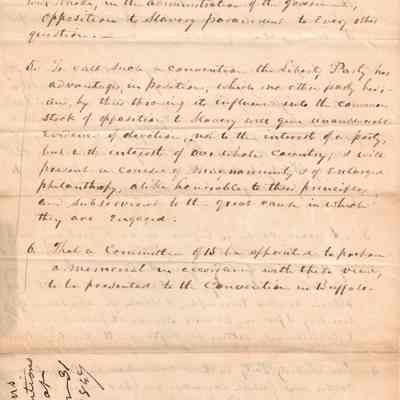 in the administration of the government,
opposition to Slavery paramount to every other
question.—
5. To call such a convention the Liberty Party has
advantage, in position, which no other party has,
and, by thus throwing its influence into the common
stock of opposition to Slavery will give
evidence of devotion, not to the interest of a party,
but to the interest of our whole country, & will
present a of magnanimity & of enlarged
philanthropy, alike honorable to their principles,
and subservient to the great cause in which
they are engaged.
6. That a Committee of be appointed to prepare
a memorial in accordance with these views,
to be presented to the Convention in Buffalo.